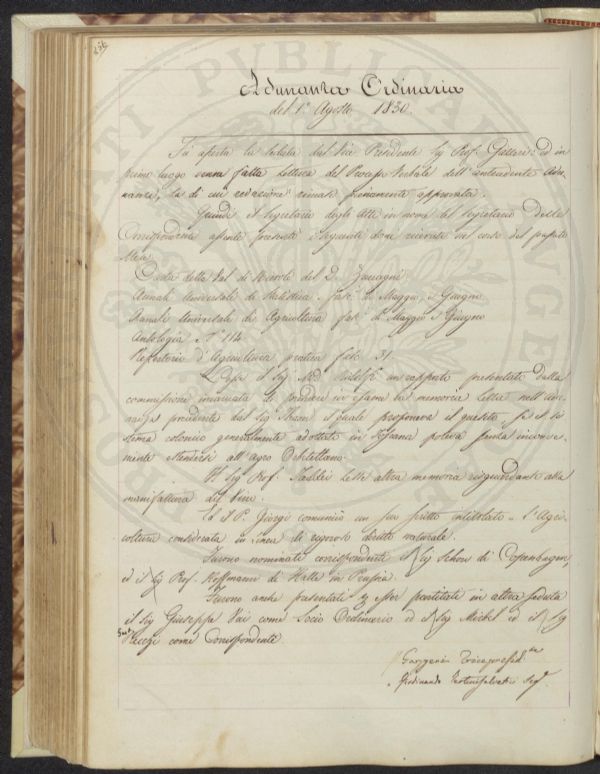 Adunanza Ordinaria
del 1° Agosto 1830.
Fu aperta la seduta dal Vice Presidente Sig. Prof. Gazzeri ed in
primo luogo venne fatta lettura del Processo Verbale dell'antecedente Adu-
nanza, la di cui redazione rimase pienamente approvata.
Quindi il Segretario degli Atti in nome del Segretario delle
Corrispondenze assente presentò i seguenti doni ricevuti nel corso del passato
Mese
Carta della Val di Nievole del D. Zuccagni
Annali Universali di Statistica fasc. di Maggio e Giugno
Annali Universali di Agricoltura fasc. di Maggio e Giugno
Antologia N° 114
Repertorio d'Agricoltura pratica fasc. 31.
Lesse il Sig. Ridolfi un rapporto presentato dalla
commissione incaricata di prendere in esame la memoria letta nell'adu-
nanza precedente dal Sig. il quale proponeva il quesito, se il si
stema colonico generalmente adottato in Toscana poteva senza inconve-
niente estendersi all'agro Orbetellano.
Il Sig. Prof. Taddei lesse altra memoria risguardante alla
manifattura del Vino.
Ed il P. Giorgi comunicò un suo scritto intitolato = L'Agri-
coltura considerata in linea di rigoroso diritto naturale.
Furono nominati corrispondenti il Sig. Schow di Copenhagen,
ed il Sig. Prof. Hoffmann di Halle in Prussia.
Furono anche presentati per esser partitati in altra seduta
il Sig. Giuseppe Vai come Socio Ordinario ed il Sig. Michel ed il Sig.
come Corrispondente
Gazzeri Vicepresid.te
Ferdinando Tartini Salvatici Seg.